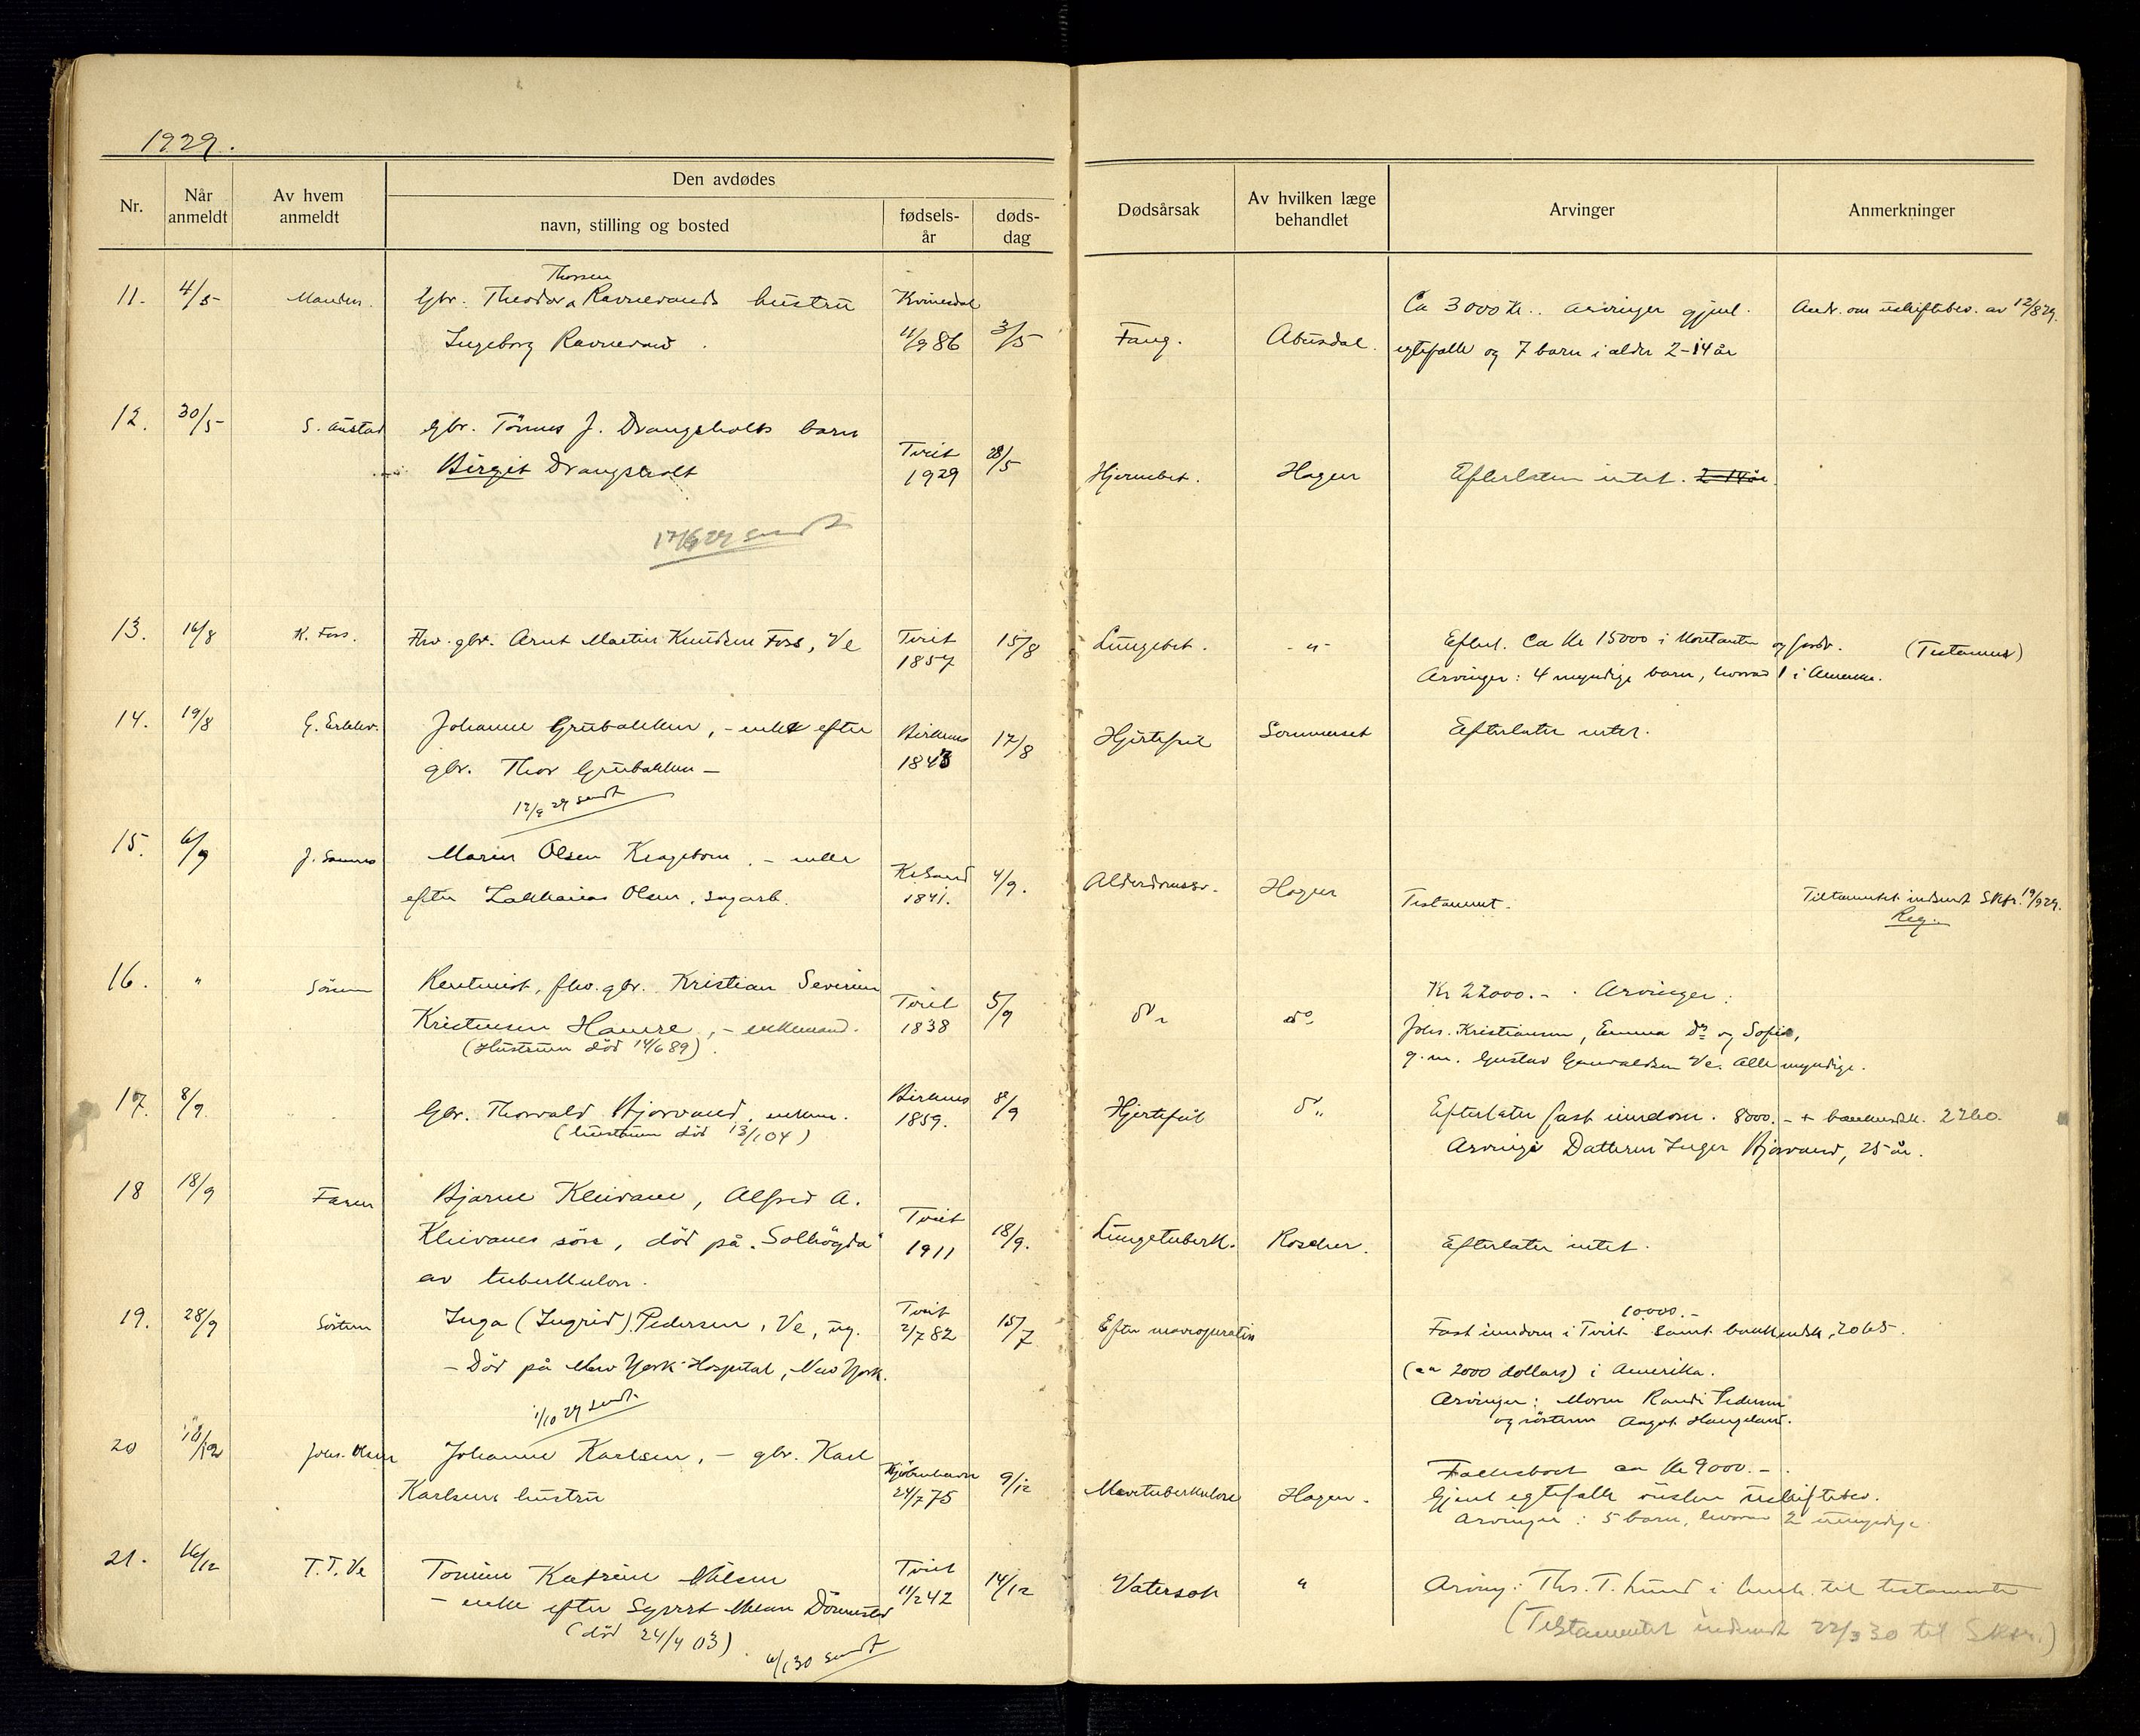 1929.
Nr.
Når anmeldt
Av hvem anmeldt
Den avdødes
navn, stilling og bosted
fødsels-år
døds-dag
Dødsårsak
Av hvilken læge behandlet
Arvinger
Anmerkninger
11. 4/5 Manden. Gbr. Theodor Thorsen Ravnevands hustru Kvinesdal Ca 3000 kr. arvinger gjenl. Andr. om uskiftebev. av 12/8 29.
Ingeborg Ravnevand. 11/9 86 3/5 Abusdal. egtefælle og 7 barn i alder 2-14 år
12. 30/5 S. Austad gbr. Tönnes J. Drangsholts barn
Birgit Drangsholt Tveit 1929 28/5 Hjernebet. Hagen Efterlater intet. 2-14 år
17/6 29 sendt
13. 16/8 K. Foss. Fhv. gbr. Arnt Martin Knudsen Foss, Ve Tveit 1857 15/8 Lungebet. - " - Efterl. Ca kr 15000 i kontanter og
Arvinger: 4 myndige barn, hvorav 1 i Amerika.
14. 19/8 Johanne Grubakken, - enke efter Birkenes 1843 17/8 Hjertefeil Sommerset Efterlater intet.
gbr. Thor Grubakken -
12/9 29 sendt
15. 6/9 Maren Olsen Kragebom, - enke
efter Zakharias Olsen, sagarb. KrSand 1841. 4/9. Alderdomssv. Hagen Testament. Testamentet indsendt Skfr. 19/9 29.
Reg.
16. " Sönnen Rentenist, fhv. gbr. Kristian Severin Kr 22000.- . Arvinger:
Kristensen Hamre, - enkemand. Tveit 1838 5/9 do do Johs. Kristiansen, Emma Do og Sofie,
(Hustruen död 14/6 89). g.m. Gustav Gunvaldsen Ve. Alle myndige.
17. 8/9 Gbr. Thorvald Bjorvand, enkem. Birkenes 1859. 8/9 Hjertefeil do Efterlater fast eiendom. 8000.- + bankindsk. 2260.
(hustruen död 13/1 04) Arving: Datteren Inger Bjorvand, 25 år.
18 18/9 Faren Bjarne Kleivane, Alfred A.
Kleivanes sön, död på "Solhögda" Tveit 1911 18/9. Lungetuberk. Roscher. Efterlater intet.
av tuberkulose.
19. 28/9 Söstern Inga (Ingrid) Pedersen, Ve, ug. Tveit 2/7 82 15/7 Efter 10000.-
Fast eiendom i Tveit samt bankindsk. 2065.
- Död på New York Hospital, New York. (ca 2000 dollars) i Amerika.
Arvinger: Moren Randi Pedersen
og söstern Aagot Haugeland.
1/10 29 sendt
20 10/12 Johs. Olsen Johanne Karlsen, - gbr. Karl Fællesboet ca kr 9000.-
Karlsens hustru Kjöbenhavn 24/7 75 9/12 Mavetuberkulose Hagen. Gjenl. egtefælle önsker uskiftebev.
Arvinger: 5 barn, hvorav 2 umyndige
21. 16/12 T. T. Ve Tomine Katrine Nilsen Tveit 11/2 42 14/12 Vatersot " Arving: Ths. T. Lund i henh. til testamente
- enke efter Syvert Nilsen Dönnestad (Testamentet indsendt 22/3 30 til Skfr.)
(död 24/4 03).
6/1 30 sendt